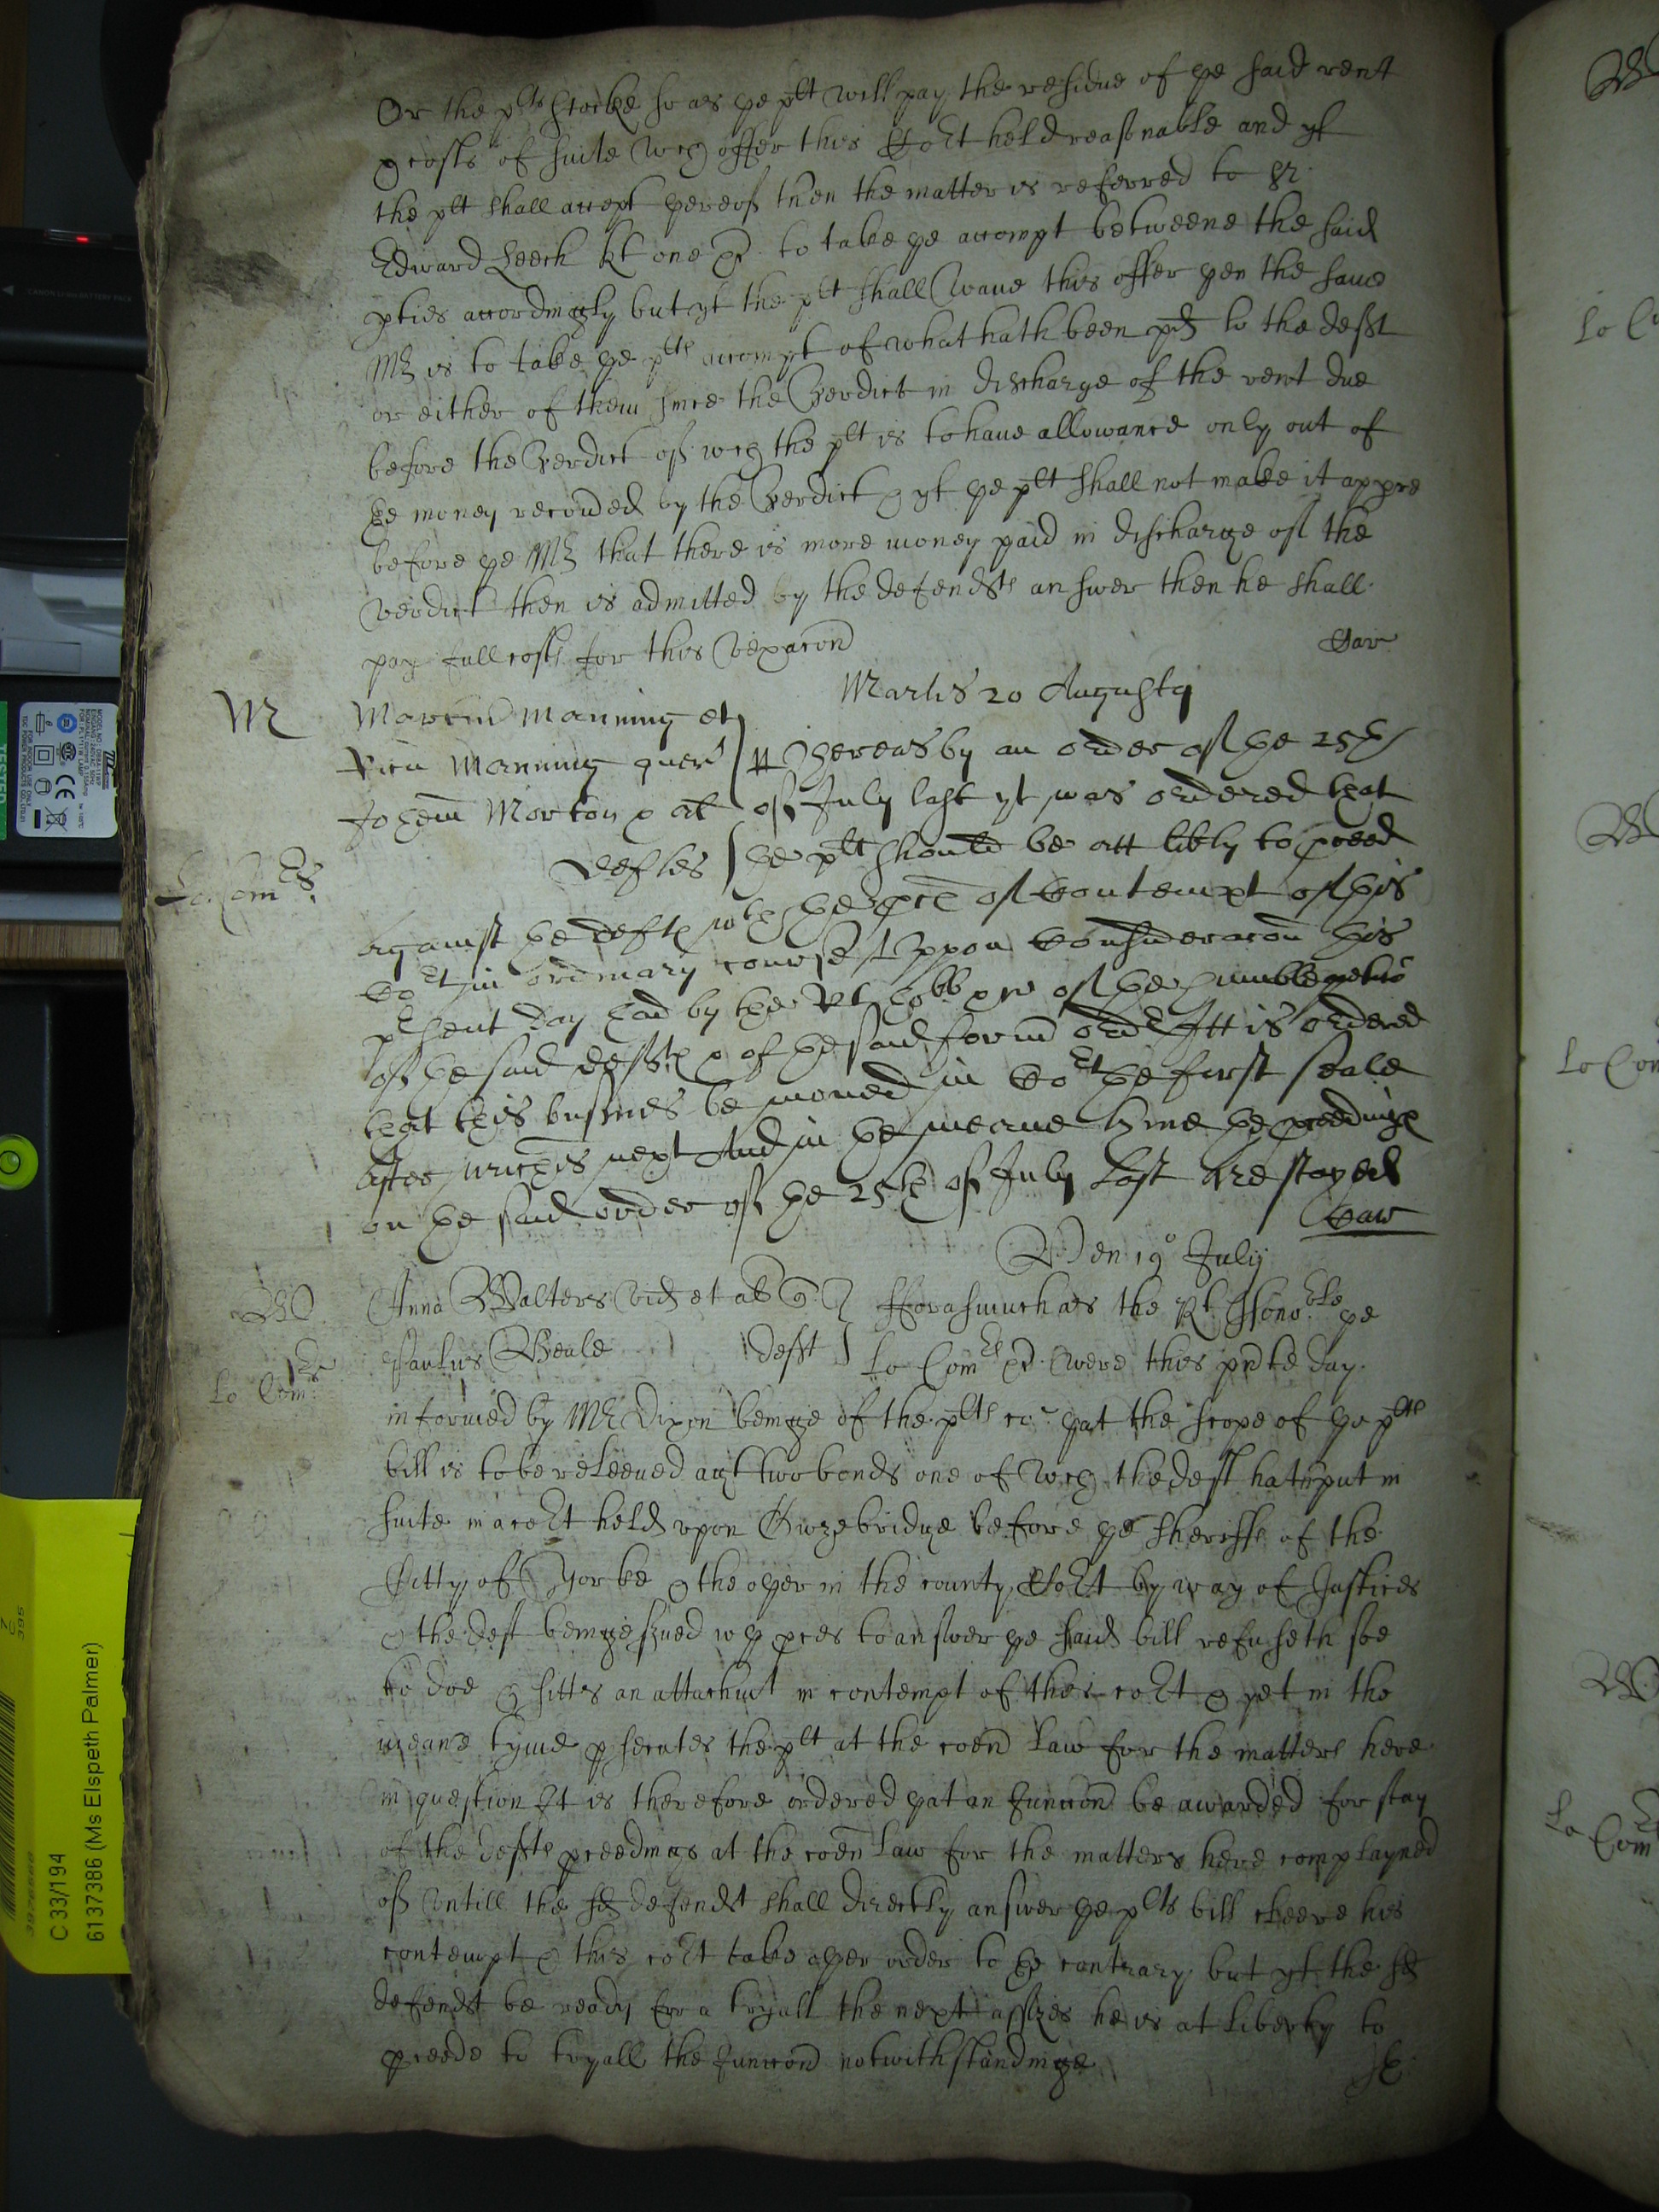 Or the plts stocke so as ye plt will pay the residue of ye said rent
& costs of suite wch offer this Cort held reasonable and yf
the plt shall accept yereof then the matter is referred to Sr
Edward Leech kt one &c to take ye accompt betweene the said
pties accordingly but yf the plt shall wave this offer yen the same
Mr is to take ye plts accompt of what hath been pd to the defft
or either of them since the verdict in discharge of the rent due
before the verdict of wch the plt is to have allowance only out of
ye money recoued by the verdict & yf ye plt shall not make it appre
before ye Mr that there is more money paid in discharge of the
verdict then is admitted by the defendts answer then he shall
pay full costs for this vexacon
Martis 20 Augusty
M
Manning et
Manning quer
Whereas by an order of ye 25th
Johem Morton & al
of July last yt was ordered that
deftes
ye plt should be att libty to pceed
Lo Comrs
against ye deftes wth ye pces of Contempt of yis
Cort in ordinary course Uppon Consideracon yis
psent day had by the Rt of ye humble peticō
of ye said deffts & of ye said form ordr Itt is ordered
that this busines be moved in Cort ye first seale
after Mich'is next And in ye meane tyme ye pceedings
on ye said order of ye 25th of July last are stayed
Ven 19o July
Anna Walters vid et al q
fforasmuch as the Rt Honoble ye
Paulus Beale defft
Lo Comrs &c were this pnte day
Lo Comrs
informed by Mr Dixon beinge of the plts co: yat the scope of ye plts
bill is to be releeued agt two bonds one of wch the deft hath put in
suite in a cort held upon Owzebridge before ye Sheriffs of the
Citty of Yorke & the oyer in the county Cort by way of Justices
& the deft beinge served wth pces to answer ye said bill refuseth soe
to doe & sitts an attachmt in contempt of this cort & yet in the
meane tyme psecutes the plt at the coen law for the matters here
in question It is therefore ordered yat an Juncon be awarded for stay
of the deffts pceedings at the coen law for the matters here complayned
of untill the sd defendt shall directly answer ye plts bill cleere his
contempt & this cort take oyer order to ye contrary but yf the sd
defendt be ready for a tryall the next assizes he is at liberty to
pceede to tryall the Juncon notwithstandinge
TESTED
C 33/194
6137386 (Ms Elspeth Palmer)